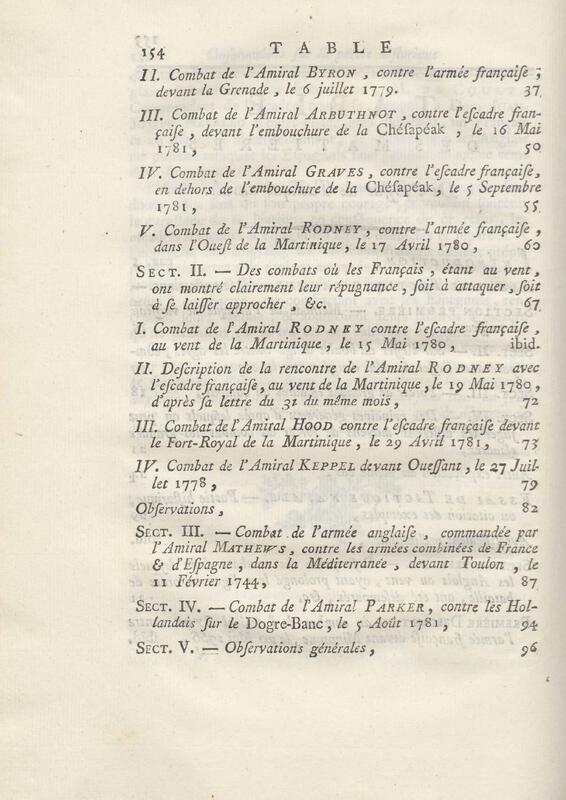 154 TABLE
II. Combat de l'Amiral BYRON, contre l'armée françaiſe;
devant la Grenade, le 6 juillet 1779. 37
III. Combat de l'Amiral ARBUTHNOT, contre l'eſcadre fran-
çaiſe, devant l'embouchure de la Chéſapéak, le 16 Mai
1781, 50
IV. Combat de l'Amiral GRAVES, contre l'eſcadre françaiſe,
en dehors de l'embouchure de la Chéſapéak, le 5 Septembre
1781, 55
V. Combat de l'Amiral RODNEY, contre l'armée françaiſe,
dans l'Oueſt de la Martinique, le 17 Avril 1780, 60
SECT. II. — Des combats où les Français, étant au vent,
ont montré clairement leur répugnance, ſoit à attaquer, ſoit
à ſe laiſſer approcher, &c. 67
I. Combat de l'Amiral RODNEY contre l'eſcadre françaiſe,
au vent de la Martinique, le 15 Mai 1780, ibid.
II. Deſcription de la rencontre de l'Amiral RODNEY avec
l'eſcadre françaiſe, au vent de la Martinique, le 19 Mai 1780,
d'après ſa lettre du 31 du même mois, 72
III. Combat de l'Amiral HOOD contre l'eſcadre françaiſe devant
le Fort-Royal de la Martinique, le 29 Avril 1781, 73
IV. Combat de l'Amiral KEPPEL devant Oueſſant, le 27 Juil-
let 1778, 79
Obſervations, 82
SECT. III. — Combat de l'armée anglaiſe, commandée par
l'Amiral MATHEWS, contre les armées combinées de France
& d'Eſpagne, dans la Méditerranée, devant Toulon, le
11 Février 1744, 87
SECT. IV. — Combat de l'Amiral PARKER, contre les Hol-
landais ſur le Dogre-Banc, le 5 Août 1781, 94
SECT. V. — Obſervations générales, 96